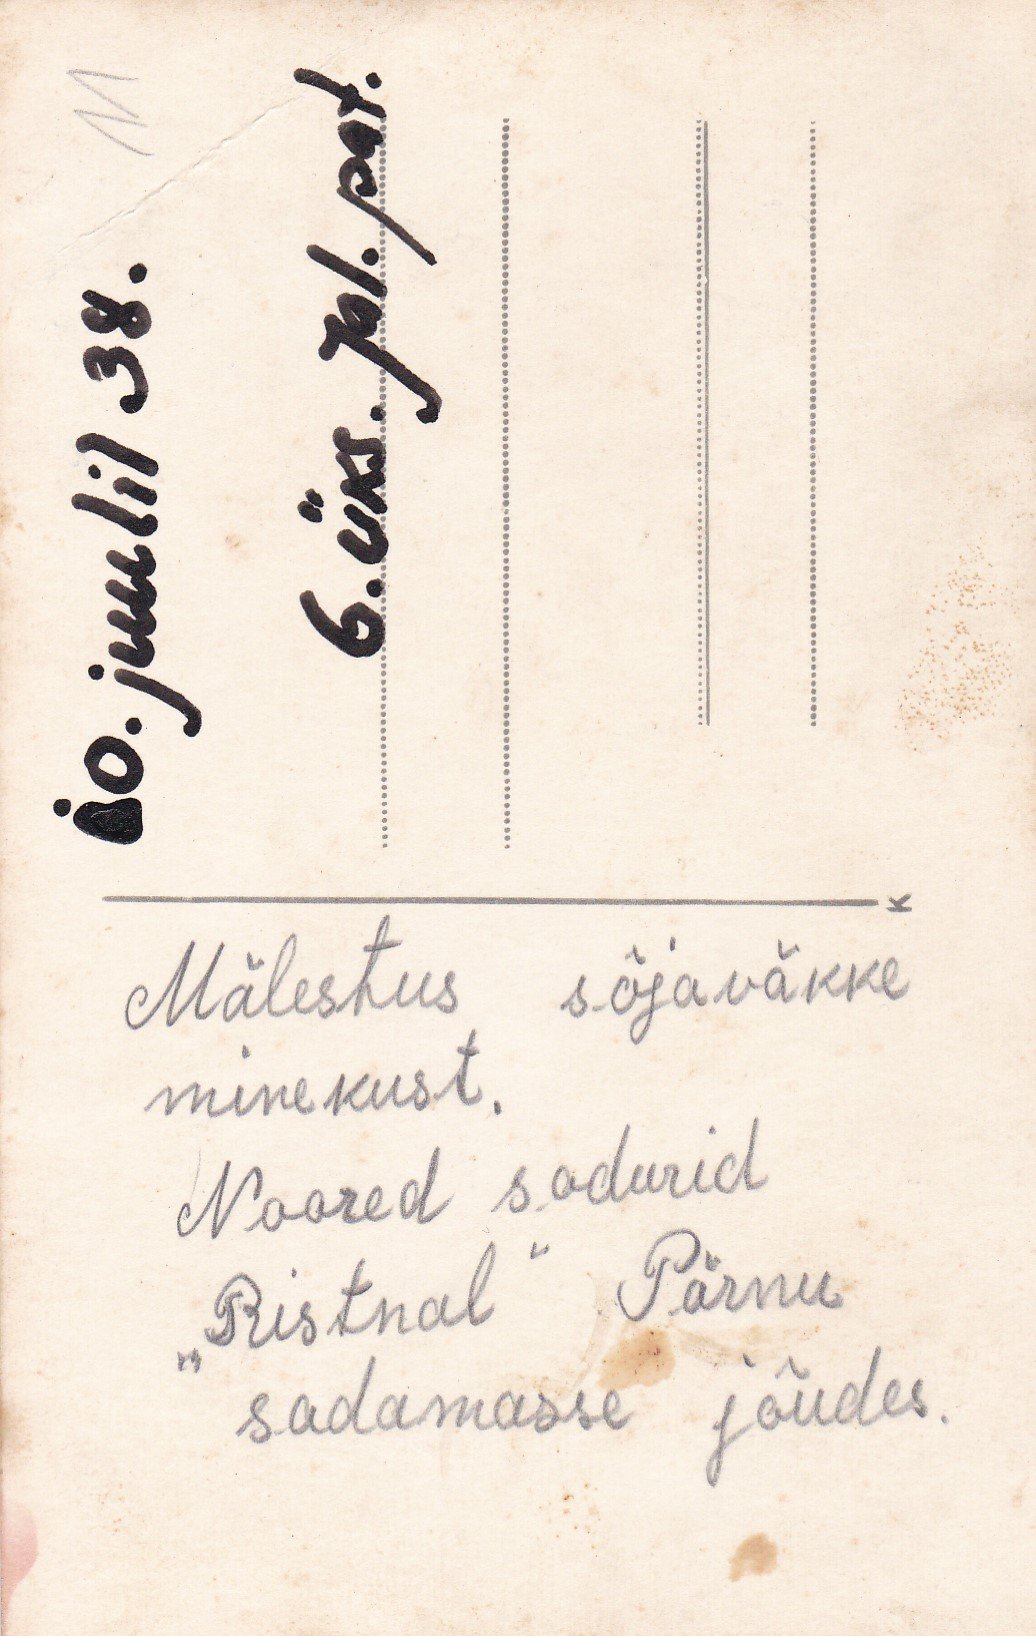 10. juulil 38.
6. üks. jal. pat.
K
Mälestus sõjaväkke
minekust.
Noored sodurid
„Ristnal“ Pärnu
sadamasse jõudes.